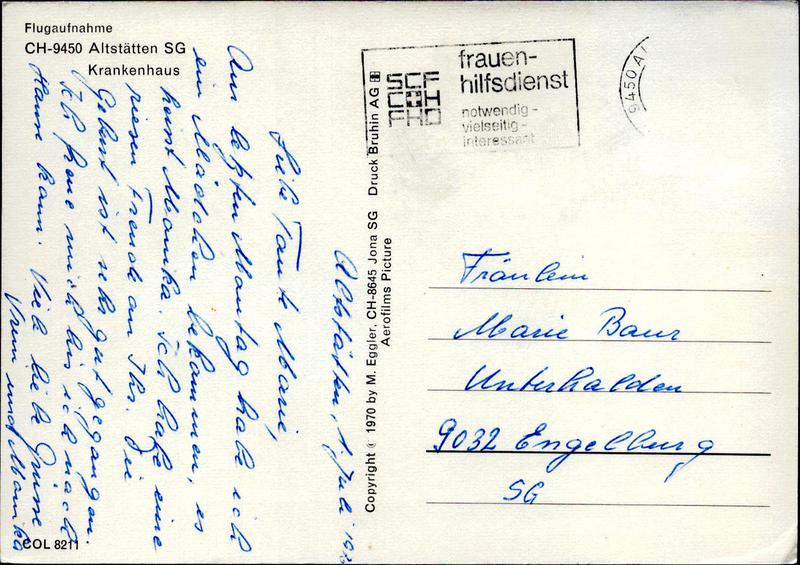 Flugaufnahme
CH-9450 Altstätten SG
Krankenhaus
Altstätten, 1. Juli
Liebe Tante Marie,
Am letzten Montag habe ich
ein Mädchen bekommen, es
heisst Monika. Ich habe eine
riesen Freude an Ihr. Die
Geburt ist sehr gut gegangen.
Ich freue mich bis ich nach
Hause kann. Viele liebe Grüsse
Vreni und Monika
COL 8211
Copyright © 1970 by M. Eggler, CH-8645 Jona SG Druck Bruhin AG
Aerofilms Picture
SCF
CH
FHD
frauen-
hilfsdienst
notwendig-
vielseitig-
interessant
9450 A
Fräulein
Marie Baur
Unterhalden
9032 Engelburg
SG